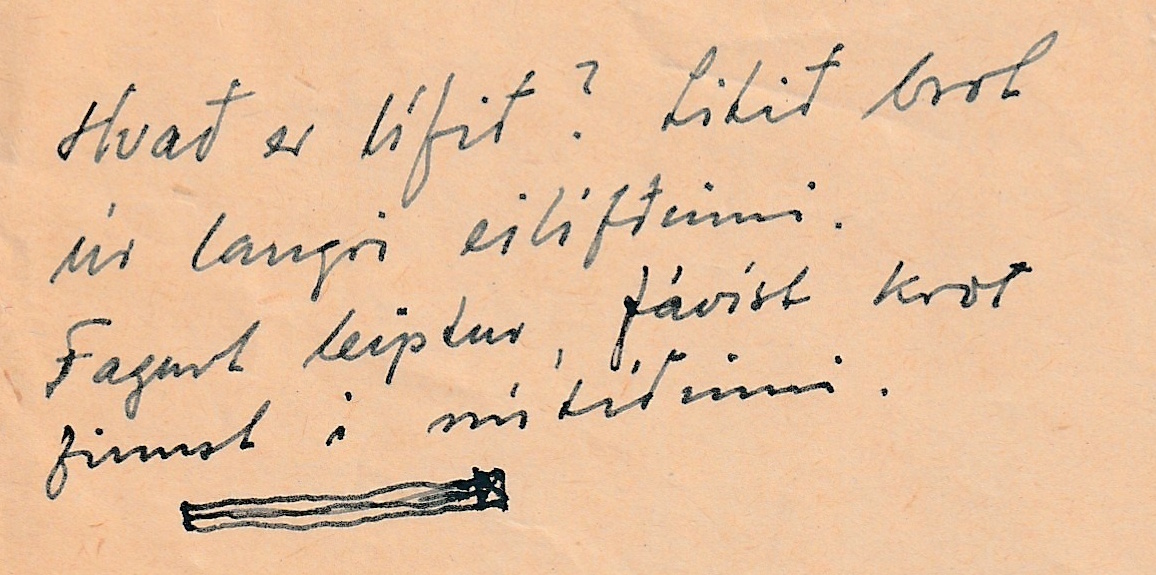 Hvað er lífið? Lítið brot
úr langri eilífðinni.
Fagurt leiptur, fávíst krot
finnst í nútíðinni.